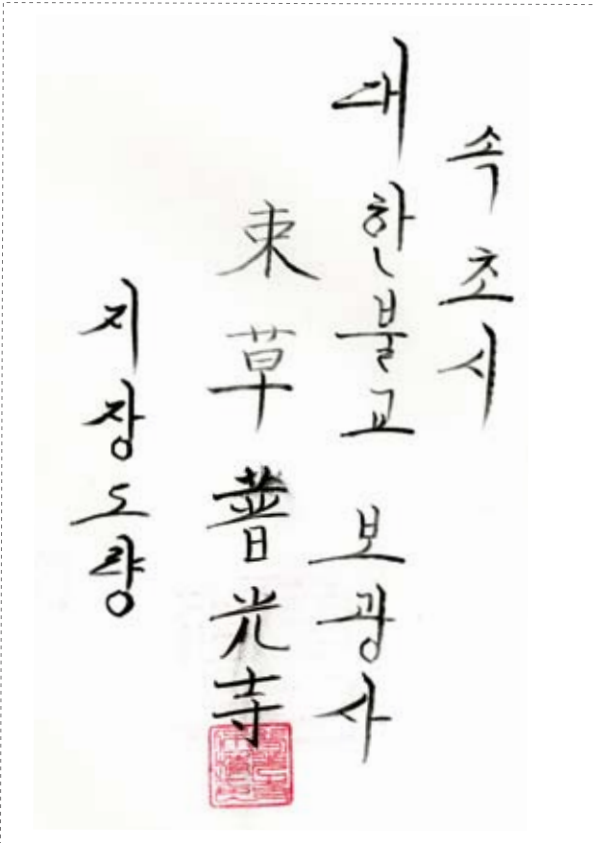 속초시
대한불교 보광사
束草普光寺
지장도량